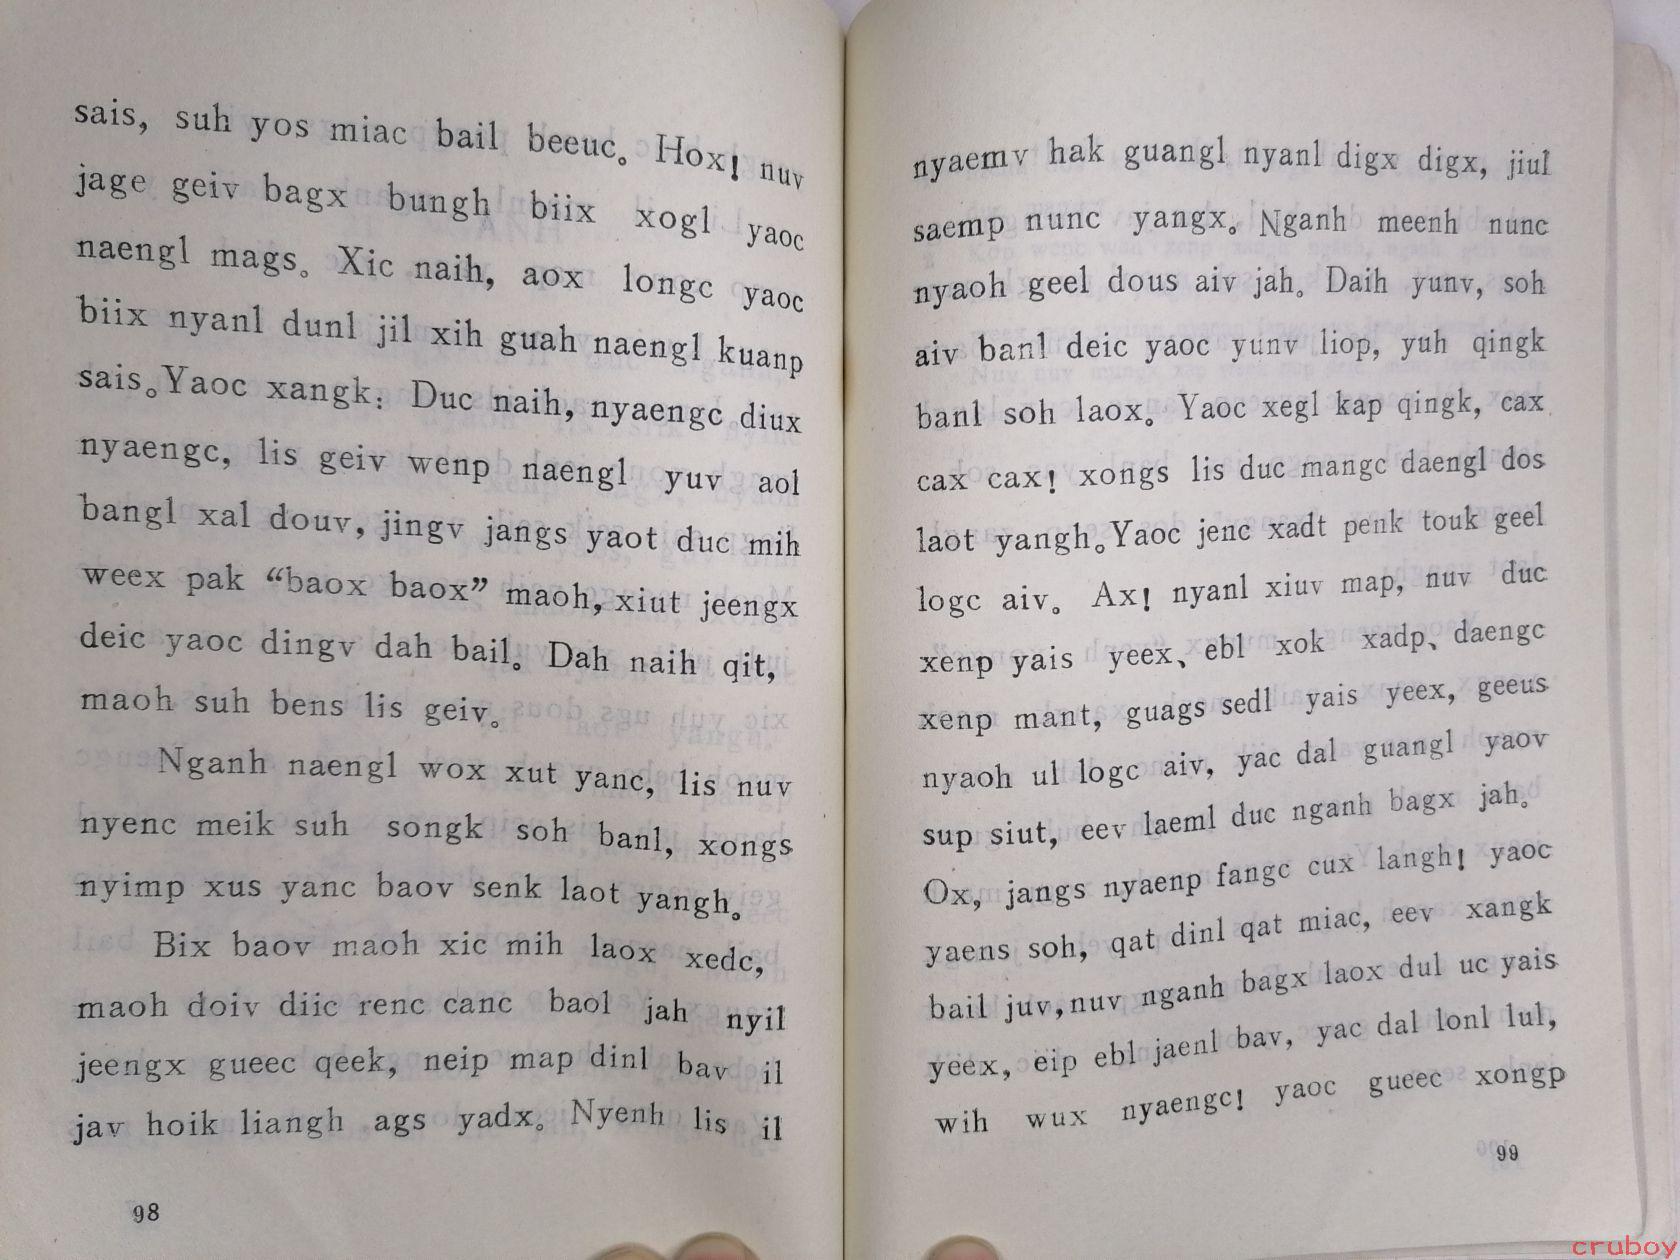 sais, suh yos miac bail beeuc。 Hox! nuv
jage geiv bagx bungh biix xogl yaoc
naengl mags。 Xic naih, aox longc yaoc
biix nyanl dunl jil xih guah naengl kuanp
sais。Yaoc xangk: Duc naih, nyaengc diux
nyaengc, lis geiv wenp naengl yuv aol
bangl xal douv, jingv jangs yaot duc mih
weex pak “baox baox” maoh, xiut jeengx
deic yaoc dingv dah bail。 Dah naih qit,
maoh suh bens lis geiv。
Nganh naengl wox xut yanc, lis nuv
nyenc meik suh songk soh banl, xongs
nyimp xus yanc baov senk laot yangh。
Bix baov maoh xic mih laox xedc,
maoh doiv diic renc canc baol jah nyil
jeengx gueec qeek, neip map dinl bav il
jav hoik liangh ags yadx。 Nyenh lis il
98
nyaemv hak guangl nyanl digx digx, jiul
saemp nunc yangx。 Nganh meenh nunc
nyaoh geel dous aiv jah。 Daih yunv, soh
aiv banl deic yaoc yunv liop, yuh qingk
banl soh laox。 Yaoc xegl kap qingk, cax
cax cax! xongs lis duc mangc daengl dos
laot yangh。Yaoc jenc xadt penk touk geel
logc aiv。 Ax! nyanl xiuv map, nuv duc
xenp yais yeex、ebl xok xadp、daengc
xenp mant, guags sedl yais yeex, geeus
nyaoh ul logc aiv, yac dal guangl yaov
sup siut, eev laeml duc nganh bagx jah。
Ox, jangs nyaenp fangc cux langh! yaoc
yaens soh, qat dinl qat miac, eev xangk
bail juv, nuv nganh bagx laox dul uc yais
yeex, eip ebl jaenl bav, yac dal lonl lul,
wih wux nyaengc! yaoc gueec xongp
99
cruboy